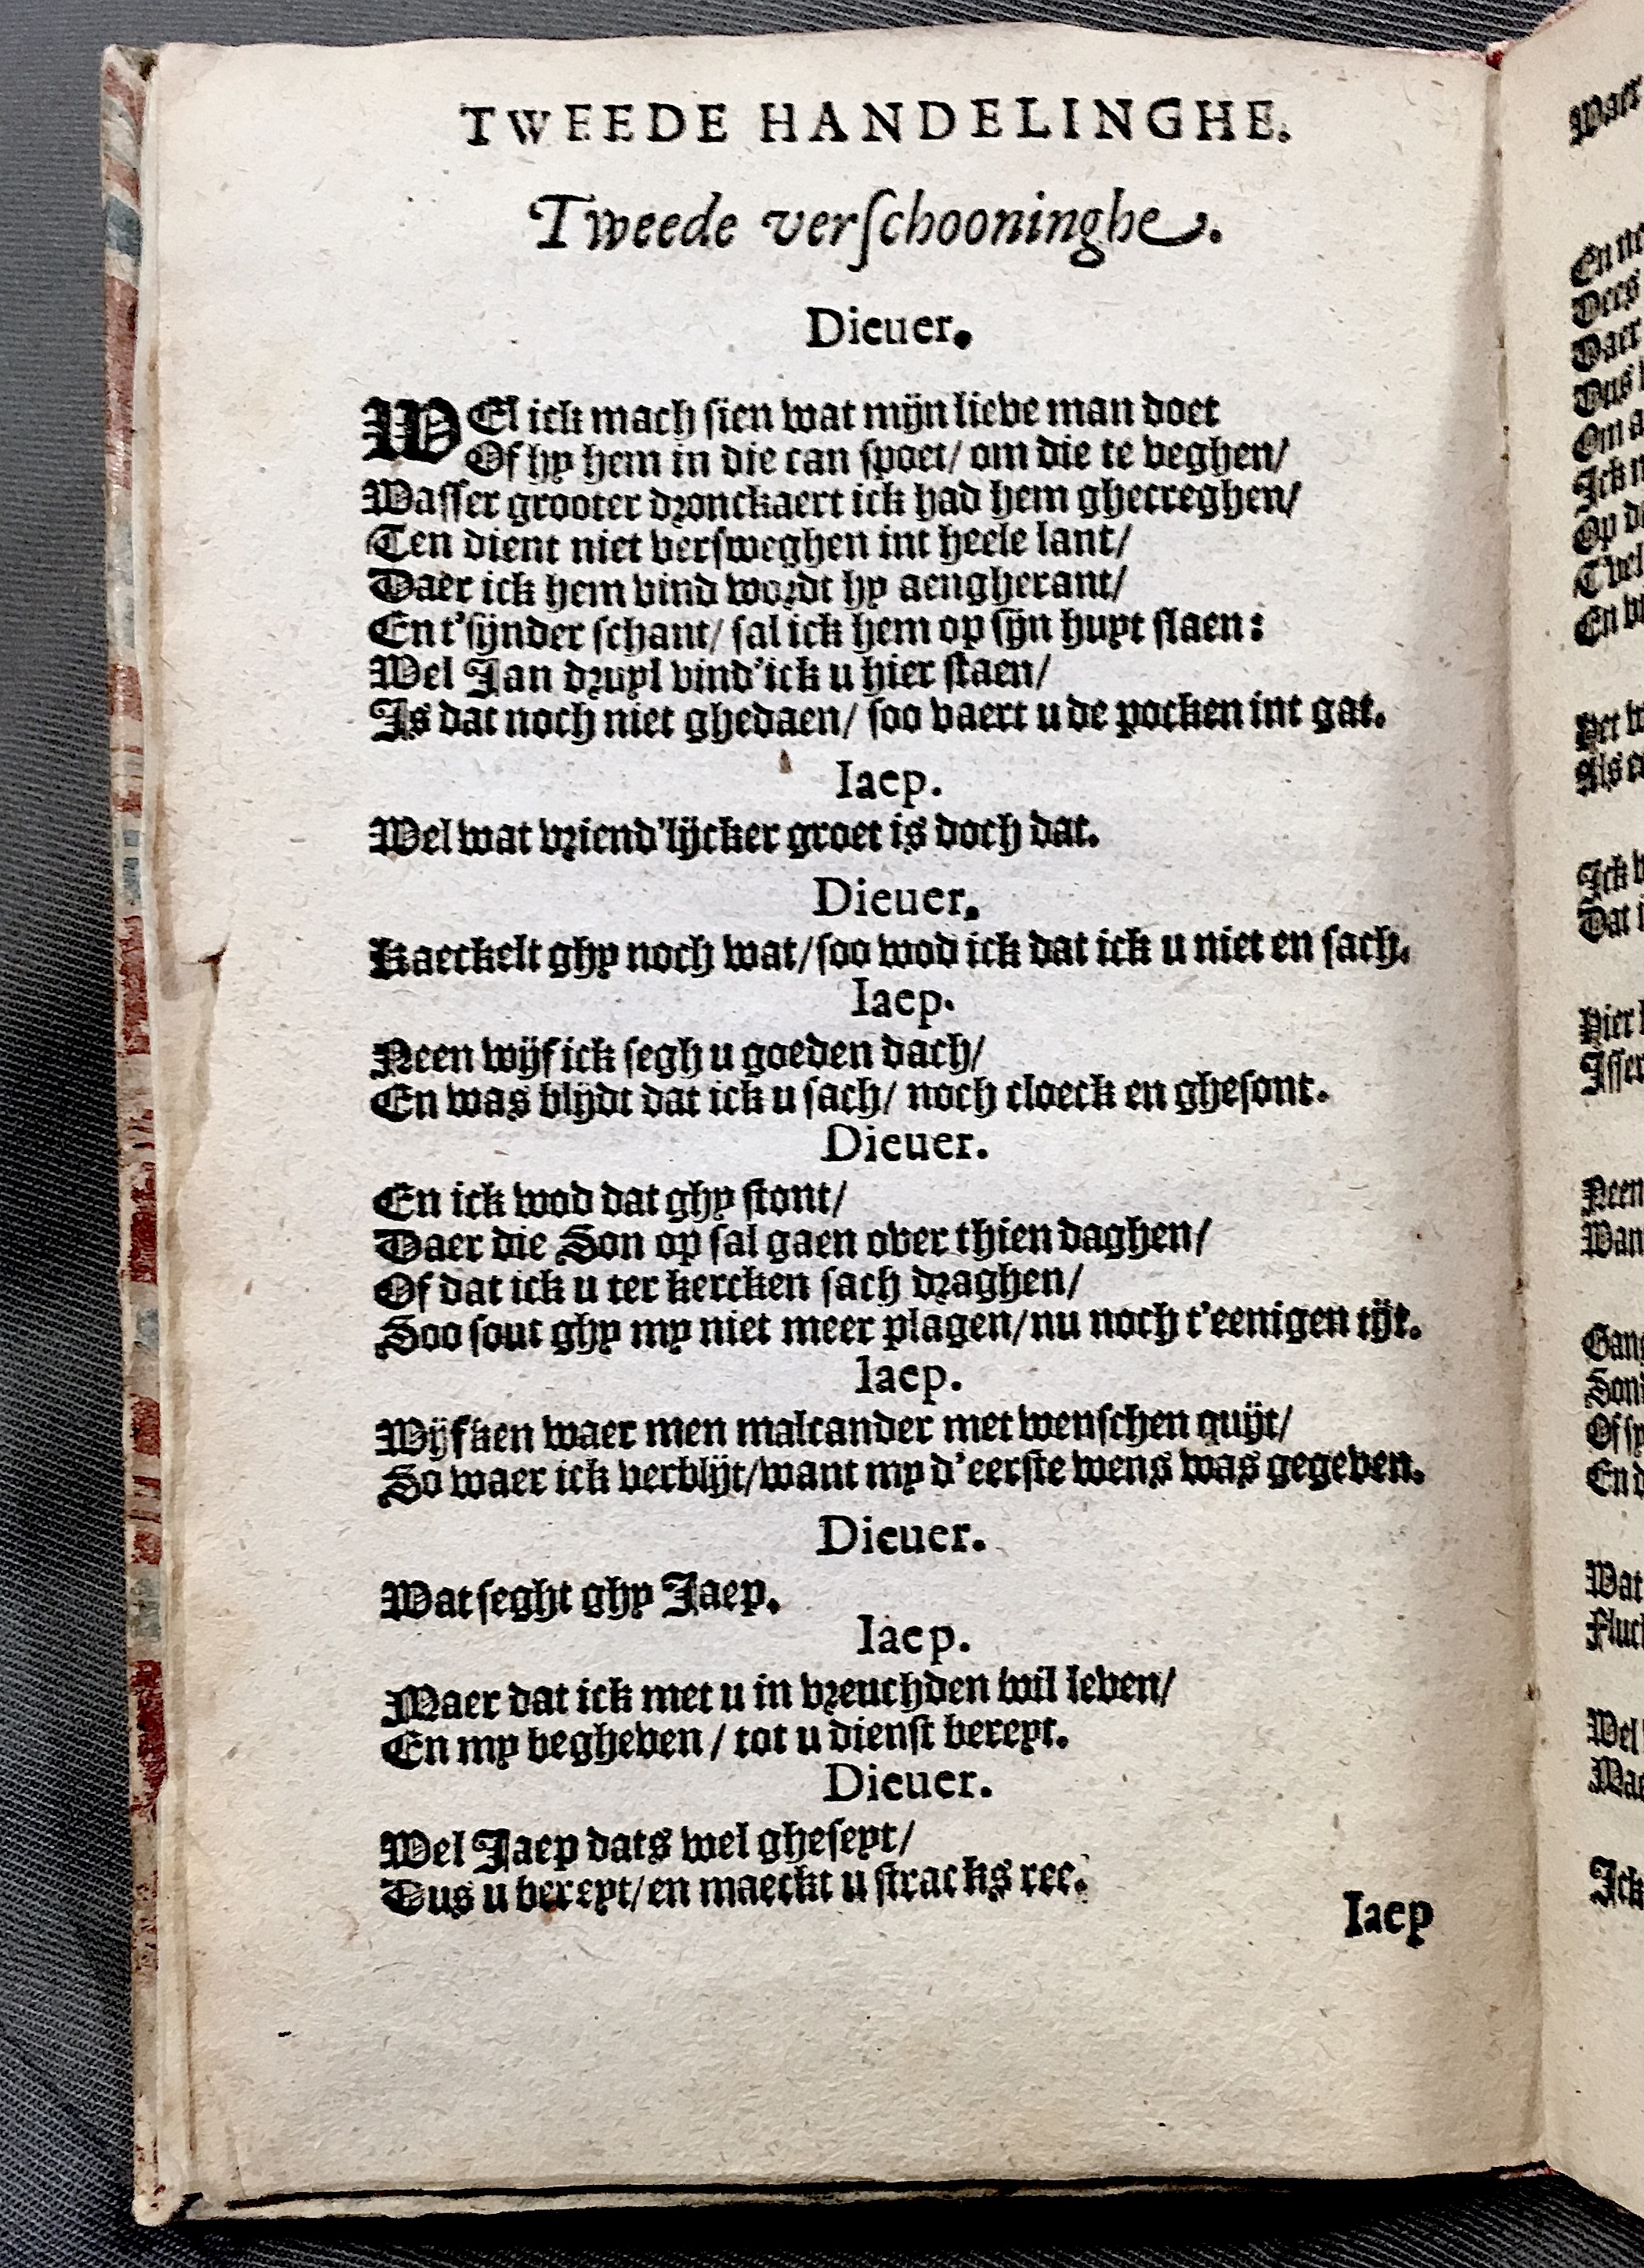 TWEEDE HANDELINGHE.
Tweede verſchooninghe.
Dieuer.
WEl ick mach ſien wat mijn lieve man doet
Of hy hem in die can ſpoet/ om die te veghen/
Waſſer grooter dronckaert ick had hem ghecreghen/
Ten dient niet verſweghen int heele lant/
Daer ick hem vind wordt hy aengherant/
En t'ſijnder ſchant/ ſal ick hem op ſijn huyt ſlaen:
Wel Jan druyl vind'ick u hier ſtaen/
Js dat noch niet ghedaen/ ſoo vaert u de pocken int gat.
Iaep.
Wel wat vriend'lijcker groet is doch dat.
Dieuer.
Kaeckelt ghy noch wat/ſoo wod ick dat ick u niet en ſach.
Iaep.
Neen wijf ick ſegh u goeden dach/
En was blijdt dat ick u ſach/ noch cloeck en gheſont.
Dieuer.
En ick wod dat ghy ſtont/
Daer die Son op ſal gaen over thien daghen/
Of dat ick u ter kercken ſach draghen/
Soo ſout ghy my niet meer plagen/nu noch t'eenigen tijt.
Iaep.
Wijfken waer men malcander met wenſchen quijt/
So waer ick verblijt/want my d'eerſte wens was gegeven.
Dieuer.
Wat ſeght ghy Jaep.
Iaep.
Maer dat ick met u in vreuchden wil leven/
En my begheven / tot u dienſt bereyt.
Dieuer.
Wel Jaep dats wel gheſeyt/
Dus u bereyt/en maeckt u ſtracks ree.
Iaep